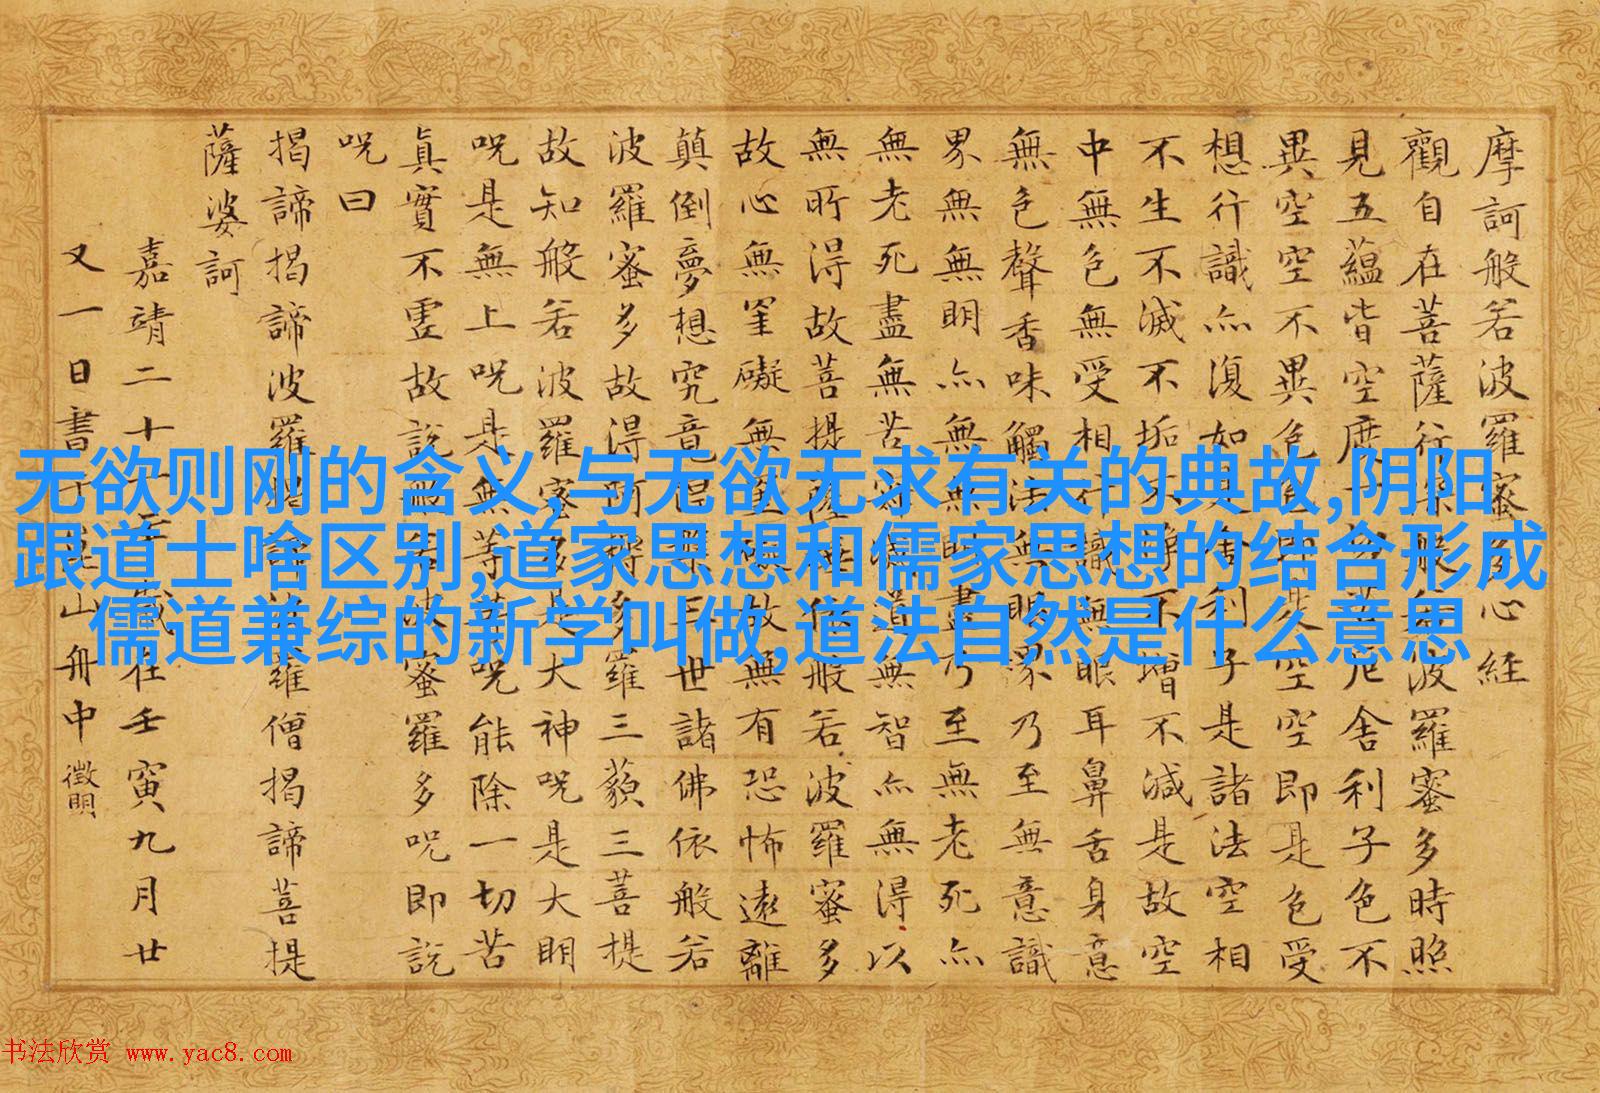 摩訶般若波羅蜜多心經
觀自在菩薩行深般若波羅蜜多時照
見五蘊皆空度一切苦厄舍利子色不
異空空不異色色即是空空即是色受
想行識亦復如是舍利子是諸法空相
不生不滅不垢不淨不增不減是故空
中無色無受相行識無眼耳鼻舌身意
無色聲香味觸法無眼界乃至無意識
界無無明亦無無明盡乃至無老死亦
無老死盡無苦滅道無智亦無得以
無所得故菩提薩埵依般若波羅蜜多
故心無罣礙無罣礙故無有恐怖遠離
顛倒夢想究竟涅槃三世諸佛依般若
波羅蜜多故得阿耨多羅三藐三菩提
故知般若波羅蜜多是大神咒是大明
咒是無上咒是無等等咒能除一切苦
真實不虛故說般若波蜜羅多咒即說
咒曰
揭諦揭諦波羅揭諦波羅僧揭諦菩提
薩婆訶
嘉靖二十一年歲在壬寅九月廿
又一日書于崑山舟中 徵明
无欲则刚的含义,与无欲无求有关的典故,阴阳
跟道士啥区别,道家思想和儒家思想的结合形成
儒道兼综的新学叫做,道法自然是什么意思
书法欣赏 www.yac8.com